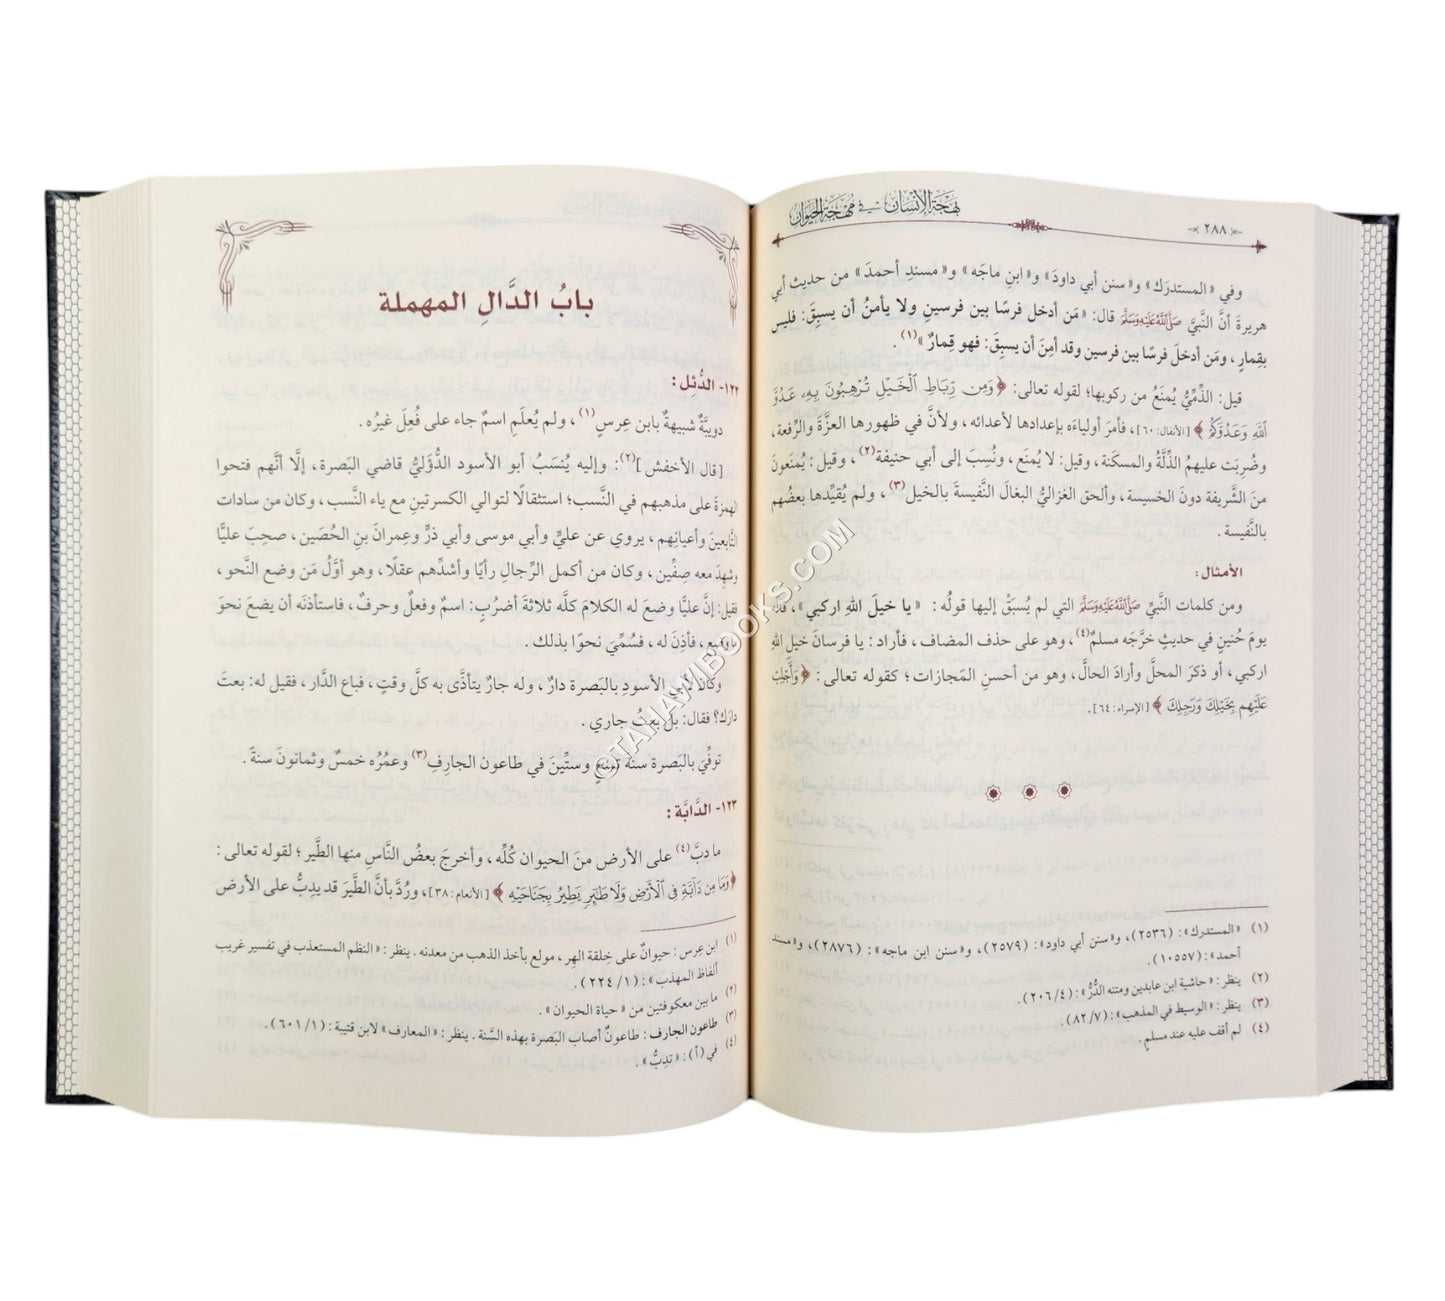 بهجة الإنسان في مهجة الحيوان
٢٨٨
وفي «المستدرَك» و«سنن أبي داودَ» و«ابنِ ماجَه» و«مسندِ أحمدَ» من حديث أبي
هريرةَ أنَّ النَّبيَّ ﷺ قال: «مَن أدخل فرسًا بين فرسين ولا يأمنُ أن يسبِقَ: فليس
بقِمارٍ، ومَن أدخلَ فرسًا بين فرسين وقد أمِنَ أن يسبِقَ: فهو قِمارٌ»(١).
قيل: الذِّمِّيُّ يُمنَعُ من ركوبها؛ لقوله تعالى: ﴿وَمِن رِّبَاطِ ٱلْخَيْلِ تُرْهِبُونَ بِهِۦ عَدُوَّ
ٱللَّهِ وَعَدُوَّكُمْ﴾ [الأنفال: ٦٠]، فأمرَ أولياءَه بإعدادها لأعدائه، ولأنَّ في ظهورها العزَّةَ والرِّفعة،
وضُرِبَت عليهمُ الذِّلَّةُ والمسكَنة، وقيل: لا يُمنَع، ونُسِبَ إلى أبي حنيفة(٢)، وقيل: يُمنَعونَ
منَ الشَّريفة دونَ الخسيسة، وألحق الغزاليُّ البغالَ النَّفيسةَ بالخيل(٣)، ولم يُقيِّدها بعضُهم
بالنَّفيسة.
الأمثال:
ومن كلمات النَّبيِّ ﷺ التي لم يُسبَقْ إليها قولُه: «يا خيلَ اللهِ اركبي»، قاله
يومَ حُنينٍ في حديثٍ خرَّجَه مسلمٌ(٤)، وهو على حذف المضاف، فأراد: يا فرسانَ خيلِ اللهِ
اركبي، أو ذكرَ المحلَّ وأرادَ الحالَّ، وهو من أحسنِ المَجازات؛ كقوله تعالى: ﴿وَأَجْلِبْ
عَلَيْهِم بِخَيْلِكَ وَرَجِلِكَ﴾ [الإسراء: ٦٤].
(١) «المستدرك»: (٢٥٣٦)، و«سنن أبي داود»: (٢٥٧٩)، و«سنن ابن ماجه»: (٢٨٧٦)، و«مسند
أحمد»: (١٠٥٥٧).
(٢) ينظر: «حاشية ابن عابدين ومتنه الدُّرُّ»: (٢٠٦/٤).
(٣) ينظر: «الوسيط في المذهب»: (٨٢/٧).
(٤) لم أقف عليه عند مسلمٍ.
بابُ الدَّالِ المهملة
١٢٢- الدُّئِل:
دويبَّةٌ شبيهةٌ بابن عِرسٍ(١)، ولم يُعلَمِ اسمٌ جاء على فُعِلَ غيرُه.
[قال الأخفش](٢): وإليه يُنسَبُ أبو الأسود الدُّؤَليُّ قاضي البَصرة، إلَّا أنَّهم فتحوا
الهمزةَ على مذهبهم في النَّسب؛ استثقالًا لتوالي الكسرتينِ مع ياء النَّسب، وكان من سادات
التَّابعينَ وأعيانِهم، يروي عن عليٍّ وأبي موسى وأبي ذرٍّ وعِمرانَ بنِ الحُصَين، صحِبَ عليًّا
وشهِدَ معه صفِّين، وكان من أكمل الرِّجالِ رأيًا وأشدِّهم عقلًا، وهو أوَّلُ مَن وضع النَّحو،
فقيل: إنَّ عليًّا وضعَ له الكلامَ كلَّه ثلاثةَ أضرُبٍ: اسمٌ وفعلٌ وحرفٌ، فاستأذنَه أن يضعَ نحوَ
ما وضع، فأذِنَ له، فسُمِّيَ نحوًا بذلك.
وكان لأبي الأسودِ بالبَصرة دارٌ، وله جارٌ يتأذَّى به كلَّ وقتٍ، فباع الدَّار، فقيل له: بعتَ
دارَك؟ فقال: بل بعتُ جاري.
توفِّيَ بالبَصرة سنةَ تسعٍ وستِّينَ في طاعون الجارِفِ(٣) وعمُرُه خمسٌ وثمانونَ سنةً.
١٢٣- الدَّابَّة:
ما دبَّ(٤) على الأرض منَ الحيوان كُلِّه، وأخرجَ بعضُ النَّاسِ منها الطَّير؛ لقوله تعالى:
﴿وَمَا مِن دَآبَّةٍ فِى ٱلْأَرْضِ وَلَا طَٰٓئِرٍ يَطِيرُ بِجَنَاحَيْهِ﴾ [الأنعام: ٣٨]، ورُدَّ بأنَّ الطَّيرَ قد يدِبُّ على الأرض
(١) ابن عِرس: حيوانٌ على خِلقة الهِر، مولع بأخذ الذهب من معدنه. ينظر: «النظم المستعذب في تفسير غريب
ألفاظ المهذب»: (٢٢٤/١).
(٢) ما بين معكوفتين من «حياة الحيوان».
(٣) طاعون الجارف: طاعونٌ أصاب البَصرة بهذه السَّنة. ينظر: «المعارف» لابن قتيبة: (٦٠١/١).
(٤) في (أ): «تدِبُّ».
©TAHAMIBOOKS.COM